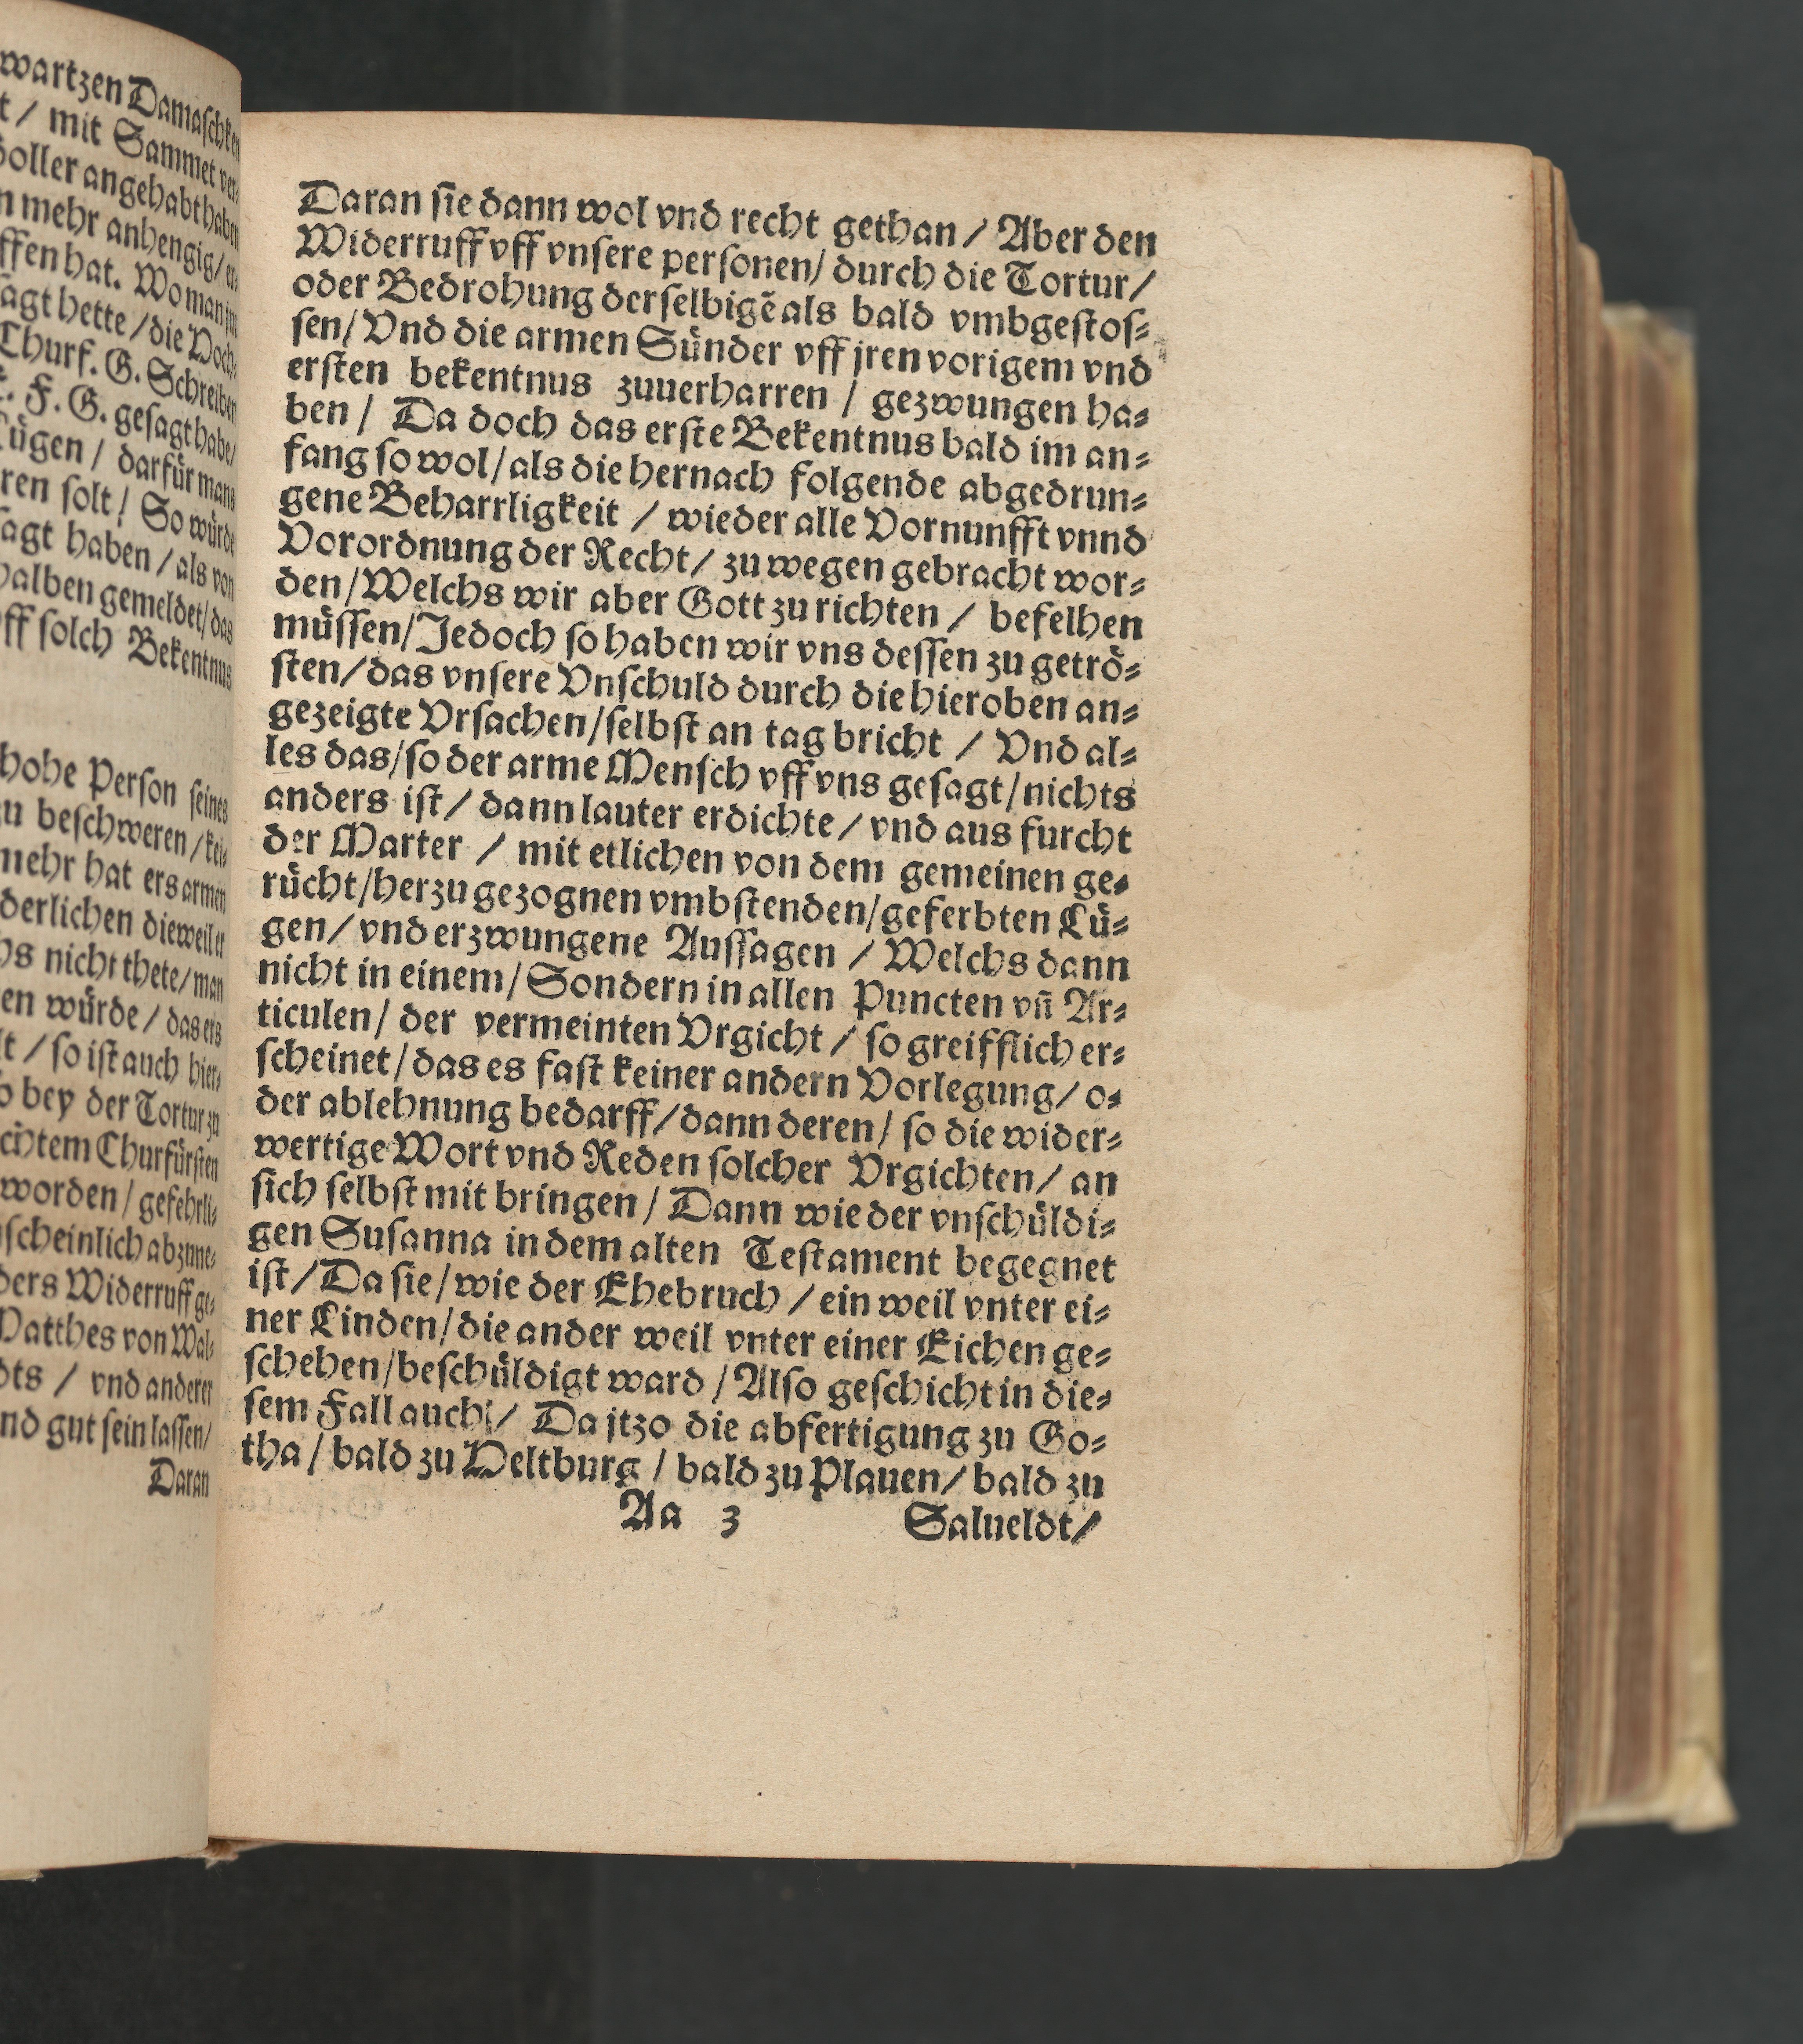 wartzen Damaschken
t / mit Sammet ver⸗
oller angehabt haben
n mehr anhengig / er⸗
ffen hat. Wo man jm
agt hette / die Voch⸗
Churf. G. Schreiben
F. G. gesagt habe /
Lügen / darfür mans
ren solt / So würde
sagt haben / als von
halben gemeldet / das
vff solch Bekentnus
hohe Person seines
zu beschweren / kei⸗
mehr hat ers armen
derlichen dieweil er
hs nicht thete / man
en würde / das ers
lt / so ist auch hier⸗
o bey der Tortur zu
chtem Churfürsten
worden / gefehrli⸗
scheinlich abzune⸗
ders Widerruff ge⸗
Matthes von Wal⸗
dts / vnd anderer
nd gut sein lassen /
Daran
Daran sie dann wol vnd recht gethan / Aber den
Widerruff vff vnsere personen / durch die Tortur /
oder Bedrohung derselbigẽ als bald vmbgestos⸗
sen / Vnd die armen Sünder vff jren vorigem vnd
ersten bekentnus zuuerharren / gezwungen ha⸗
ben / Da doch das erste Bekentnus bald im an⸗
fang so wol / als die hernach folgende abgedrun⸗
gene Beharrligkeit / wieder alle Vornunfft vnnd
Vorordnung der Recht / zu wegen gebracht wor⸗
den / Welchs wir aber Gott zu richten / befelhen
müssen / Jedoch so haben wir vns dessen zu getrö⸗
sten / das vnsere Vnschuld durch die hieroben an⸗
gezeigte Vrsachen / selbst an tag bricht / Vnd al⸗
les das / so der arme Mensch vff vns gesagt / nichts
anders ist / dann lauter erdichte / vnd aus furcht
der Marter / mit etlichen von dem gemeinen ge⸗
rücht / herzu gezognen vmbstenden / geferbten Lü⸗
gen / vnd erzwungene Aussagen / Welchs dann
nicht in einem / Sondern in allen Puncten vñ Ar⸗
ticulen / der vermeinten Vrgicht / so greifflich er⸗
scheinet / das es fast keiner andern Vorlegung / o⸗
der ablehnung bedarff / dann deren / so die wider⸗
wertige Wort vnd Reden solcher Vrgichten / an
sich selbst mit bringen / Dann wie der vnschüldi⸗
gen Susanna in dem alten Testament begegnet
ist / Da sie / wie der Ehebruch / ein weil vnter ei⸗
ner Linden / die ander weil vnter einer Eichen ge⸗
schehen / beschüldigt ward / Also geschicht in die⸗
sem Fall auch / Da jtzo die abfertigung zu Go⸗
tha / bald zu Veltburg / bald zu Plauen / bald zu
Aa 3 Salueldt /